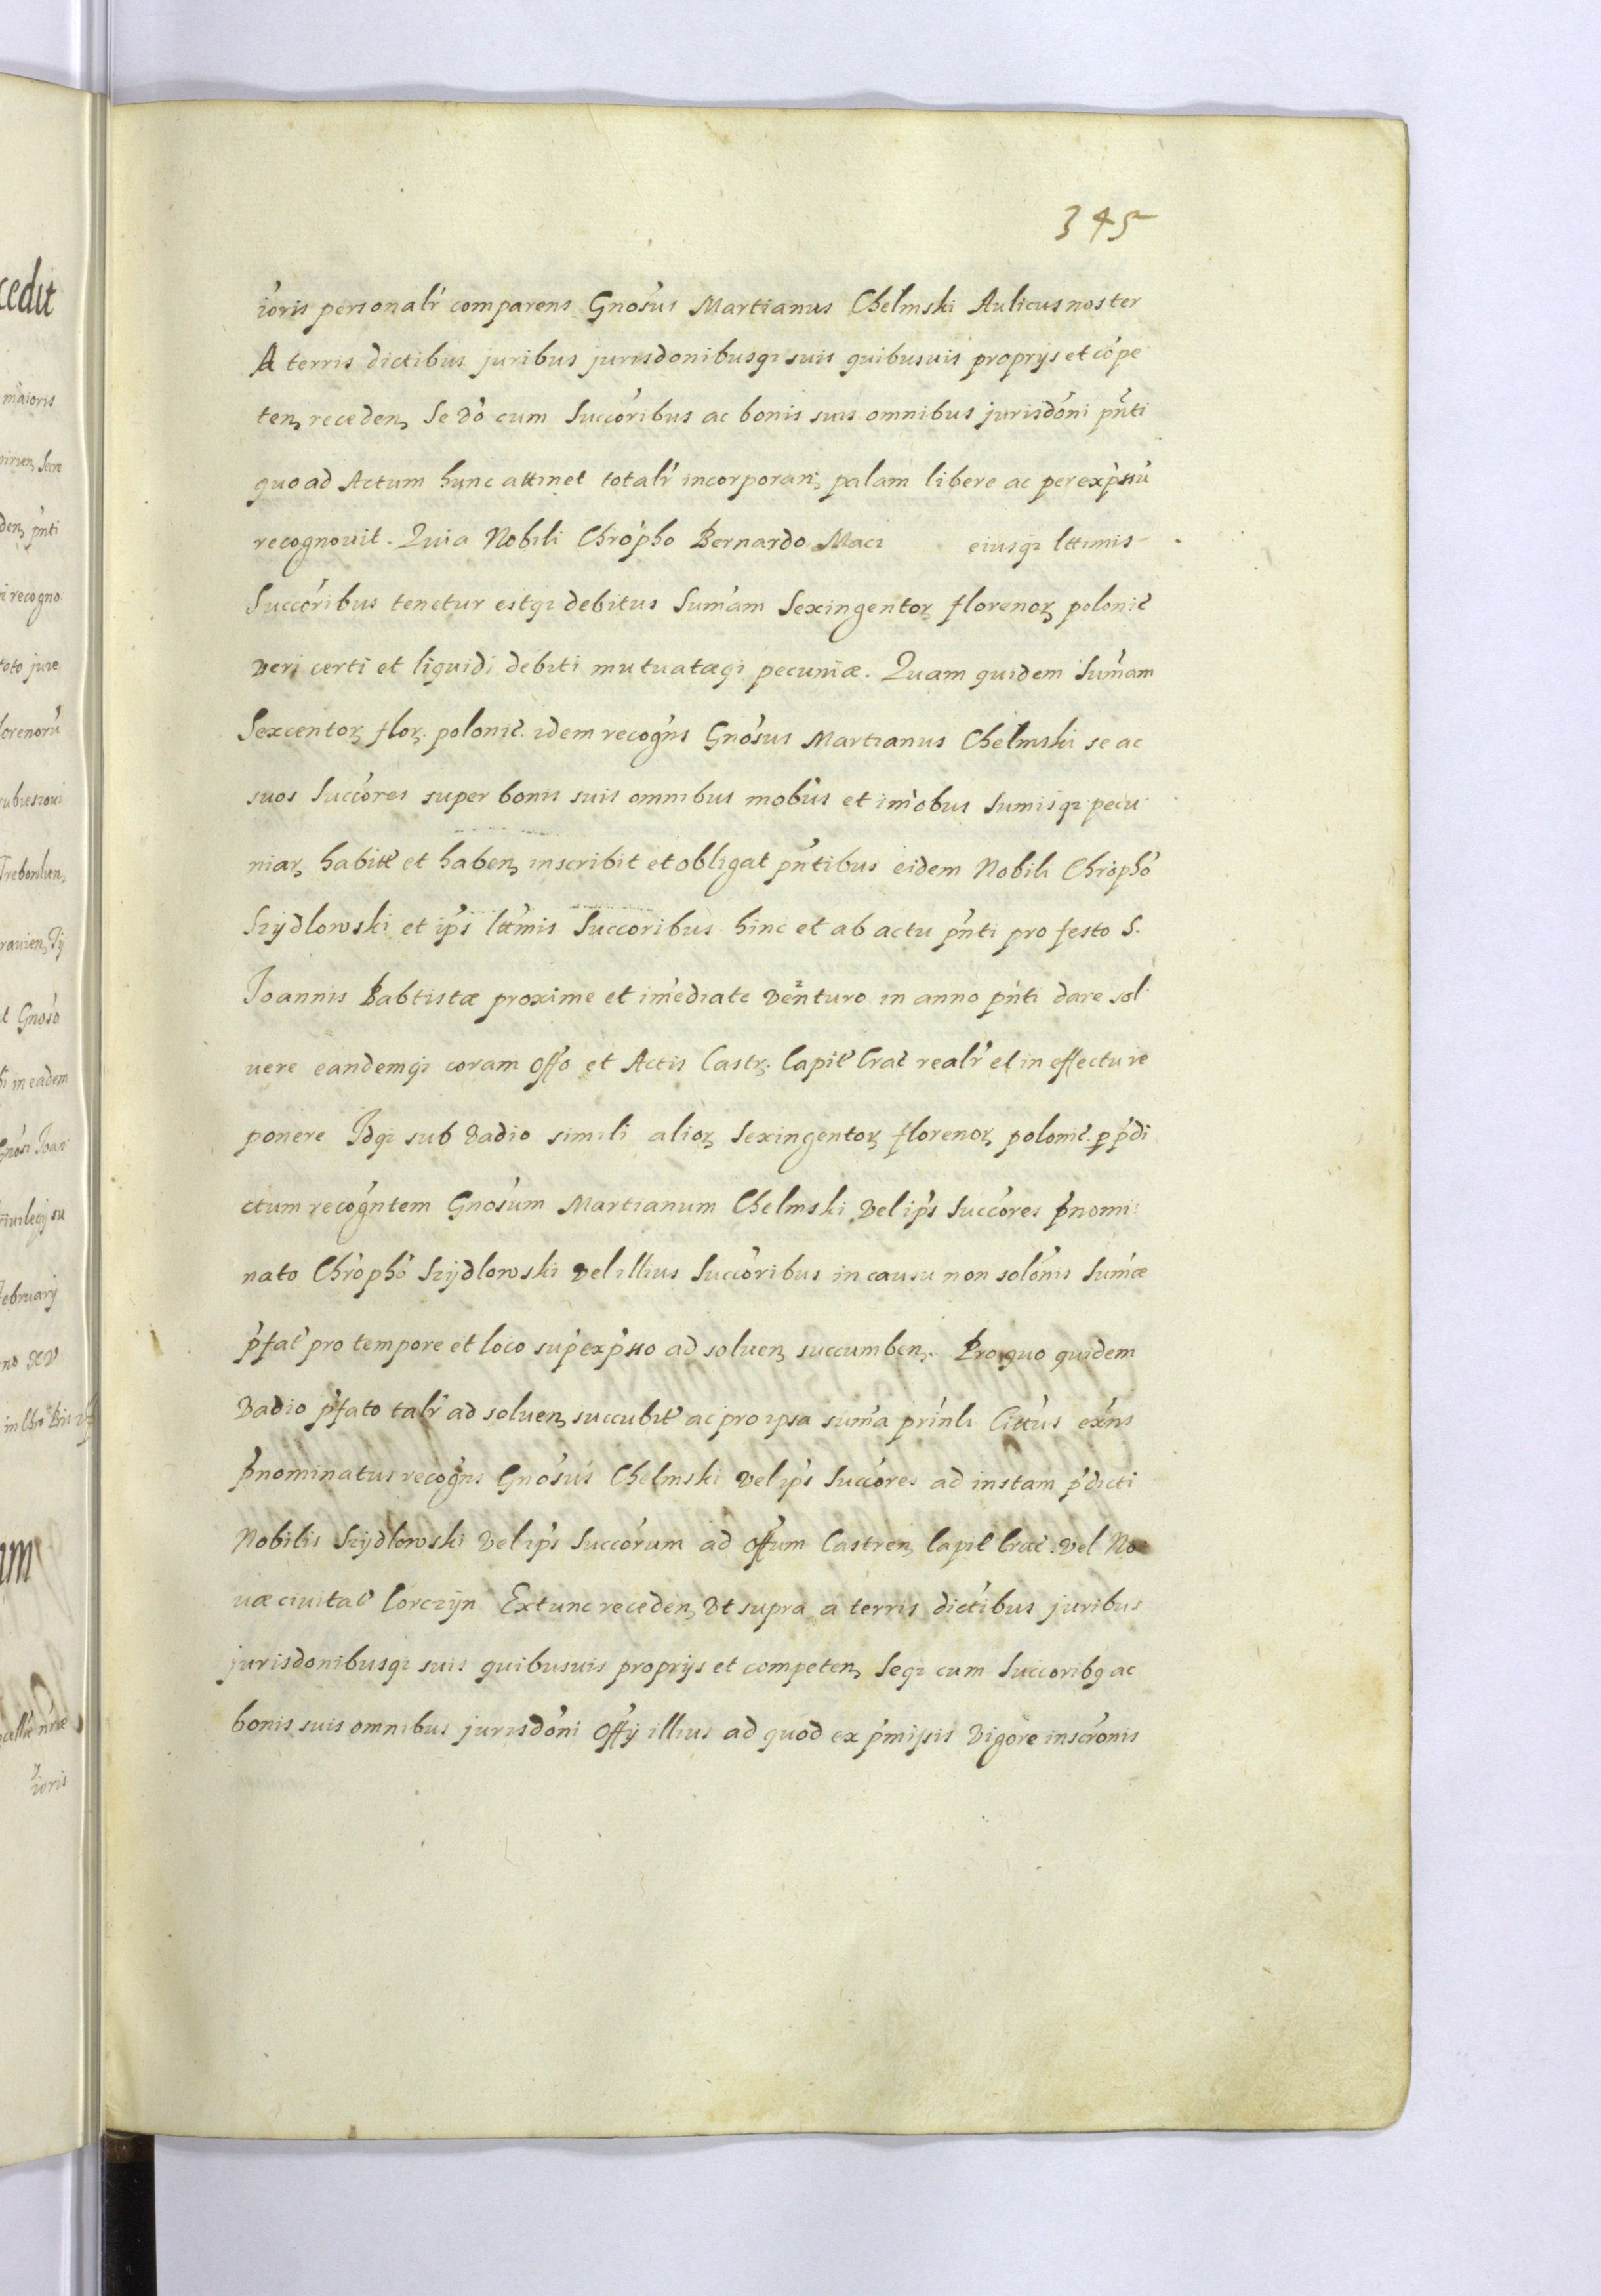 345
ioris personalr comparens Gnosus Martianus Chelmski Aulicus noster
A terris dictibus juribus jurisdonibusqȝ suis quibusuis proprijs et cope
tenȝ recedenȝ Se vo cum Succoribus ac bonis suis omnibus jurisdoni pnti
quoad Actum hunc attinet totalr incorporanȝ palam libere ac per expssu
recognouit. Quia Nobili Chropho Bernardo Maci eiusqȝ lttimis
Succoribus tenetur estqȝ debitus Sumam Sexingentorȝ florenorȝ polonic
veri certi et liquidi debiti mutuatæqȝ pecuniæ. Quam quidem Sumam
Sexcentorȝ florȝ. polonic. idem recogns Gnosus Martianus Chelmski se ac
suos Succores super bonis suis omnibus mobus et imobus Sumisqȝ pecu
niarȝ habitt et habenȝ inscribit et obligat pntibus eidem Nobili Chropho
Szydlowski et ips lttmis Succoribus hinc et ab actu pnti pro festo S.
Joannis Babtistæ proxime et imediate venturo in anno pnti dare sol
uere eandemqȝ coram Offo et Actis Castrȝ. Capit Crac realr et in effectu re
ponere Idqȝ sub vadio simili aliorȝ Sexingentorȝ florenorȝ polonic. p pdi
ctum recogntem Gnosum Martianum Chelmski vel ips Succores pnomi
nato Chropho Szydlowski vel illius Succoribus in causu non solonis Sumæ
pfat pro tempore et loco sup expsso ad soluenȝ succumbenȝ. Pro quo quidem
Vadio pfato talr ad soluenȝ succubit ac pro ipsa suma prinli Cittus exns
pnominatus recogns Gnosus Chelmski vel ips Succores ad instam pdicti
Nobilis Szydlowski vel ips Succorum ad Offum Castrenȝ Capit Crac. vel No
uæ ciuitat Corczyn Extunc recedenȝ Vt supra a terris dictibus juribus
jurisdonibusqȝ suis quibusuis proprijs et competenȝ Seqȝ cum Succoribȝ ac
bonis suis omnibus jurisdoni Offij illius ad quod ex pmissis Vigore inscronis